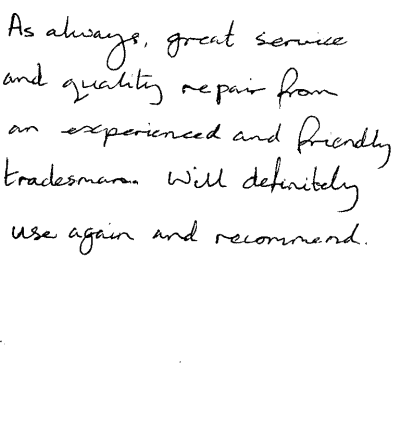 As always, great service
and quality repair from
an experienced and friendly
tradesman. Will definitely
use again and recommend.